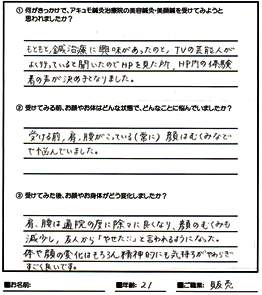 ① 何がきっかけで、アキュモ鍼灸治療院の美容鍼灸・美顔鍼を受けてみようと
思われましたか?
もともと鍼治療に興味があったのと、TVの芸能人が
よく行っていると聞いたのでHPを見た所、HP内の体験
者の声が決め手となりました。
② 受けてみる前、お顔やお体はどんな状態で、どんなことに悩んでいましたか?
受ける前、肩、腰がこっている(常に) 顔はむくみなど
で悩んでいました。
③ 受けてみた後、お顔やお身体がどう変化しましたか?
肩、腰は通院の度に除々に良くなり、顔のむくみも
減少し、友人から「やせた?」と言われるようになった。
体や顔の変化はもちろん精神的にも気持ちがやわらぎ
すごく良いです。
■お名前: ■年齢: 21 ■ご職業: 販売